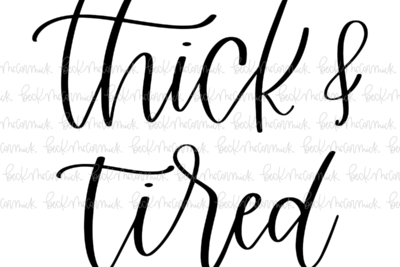 thick &
tired